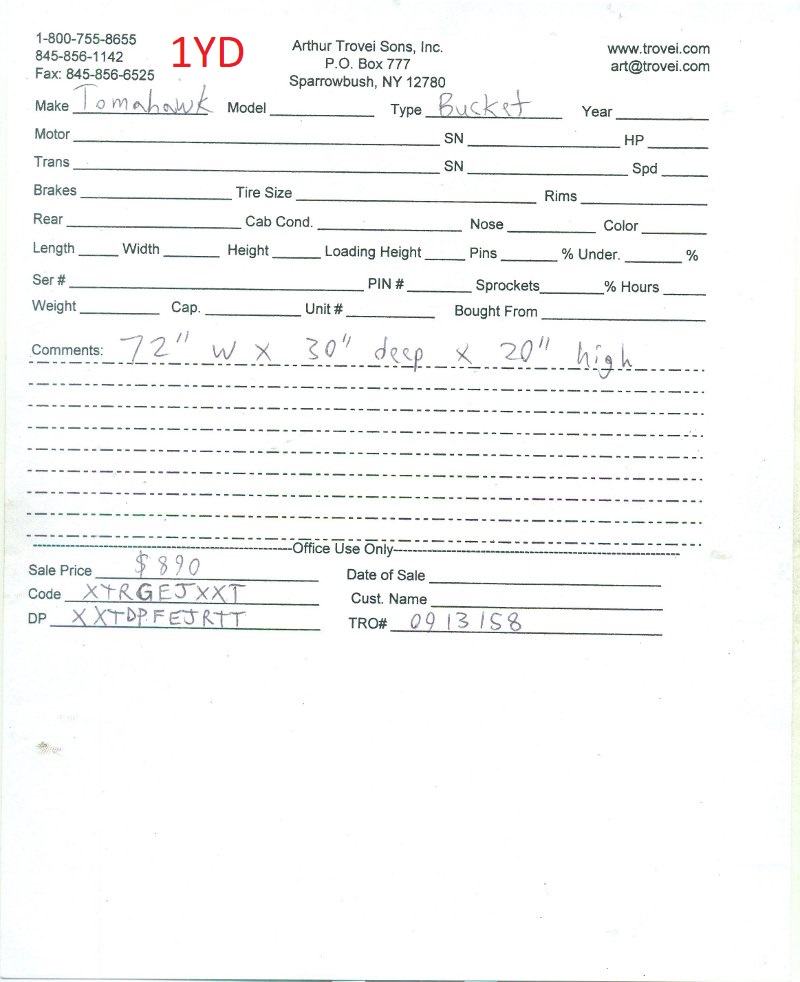 1-800-755-8655
845-856-1142
Fax: 845-856-6525
1YD
Arthur Trovei Sons, Inc.
P.O. Box 777
Sparrowbush, NY 12780
www.trovei.com
art@trovei.com
Make Tomahawk Model Type Bucket Year
Motor SN HP
Trans SN Spd
Brakes Tire Size Rims
Rear Cab Cond. Nose Color
Length Width Height Loading Height Pins % Under. %
Ser # PIN # Sprockets % Hours
Weight Cap. Unit # Bought From
Comments: 72" W X 30" deep x 20" high
Office Use Only
Sale Price $890 Date of Sale
Code XYRGEJXXT Cust. Name
DP XXTDPFEJRTT TRO# 0913158